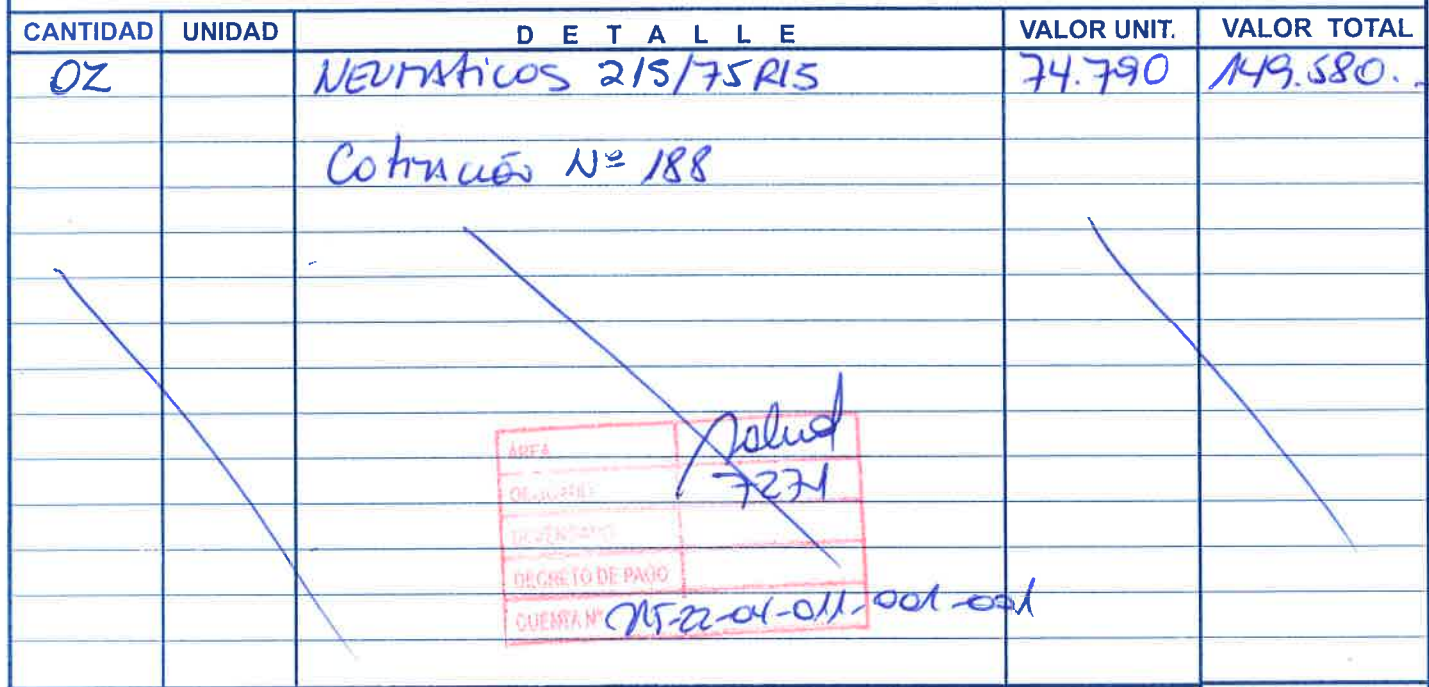 CANTIDAD UNIDAD DETALLE VALOR UNIT. VALOR TOTAL
02 NEUMATICOS 215/75 R15 74.790 149.580.-
Cotización Nº 188
ÁREA Salud
7271
DECRETO DE PAGO
CUENTA Nº 215-22-04-011-001-001